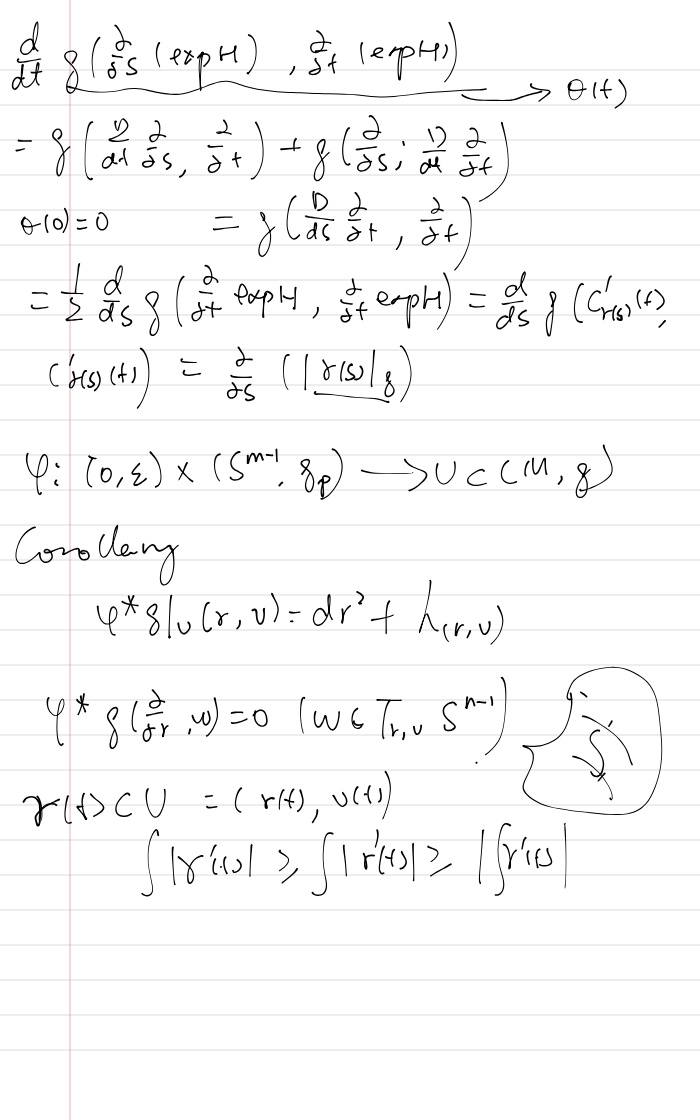 d/dt g(∂/∂s (exp H), ∂/∂t (exp H)) → θ(t)
= g(D/dt ∂/∂s, ∂/∂t) + g(∂/∂s; D/dt ∂/∂t)
θ(0)=0 = g(D/ds ∂/∂t, ∂/∂t)
= 1/2 d/ds g(∂/∂t exp H, ∂/∂t exp H) = d/ds g(C'γ(s)(t),
C'γ(s)(t)) = ∂/∂s (|γ(s)|g)
φ: (0,ε) × (S^{m-1}, g_p) → U ⊂ (M, g)
Corollary
φ*g|_U (r, v) = dr² + h_{(r,v)}
φ* g(∂/∂r, w) = 0 (w ∈ T_{r,v} S^{n-1})
γ(t) ⊂ U = (r(t), v(t))
∫|γ'(t)| ≥ ∫|r'(t)| ≥ |∫r'(t)|